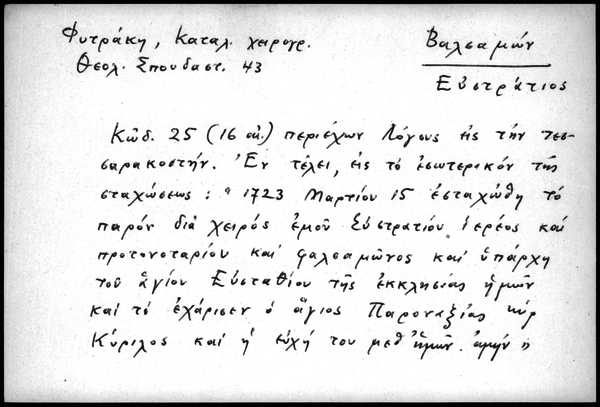 Φυτράκη, Καταλ. χειρογρ.
Θεολ. Σπουδαστ. 43
Βαλσαμών
Εὐστράτιος
Κῶδ. 25 (16 αἰ.) περιέχων Λόγους εἰς τήν τεσ-
σαρακοστήν. Ἐν τέλει, εἰς τό ἐσωτερικόν τῆς
σταχώσεως: "1723 Μαρτίου 15 ἐσταχώθη τό
παρόν διά χειρός ἐμοῦ Εὐστρατίου ἱερέος καί
προτονοταρίου καί φαλσαμῶνος καί ὑπάρχη
τοῦ ἁγίου Εὐσταθίου τῆς ἐκκλησίας ἡμῶν
καί τό ἐχάρισεν ὁ ἅγιος Παροναξίας κύρ
Κύριλος καί ἡ εὐχή του μεθ ἡμῶν. ἀμήν"